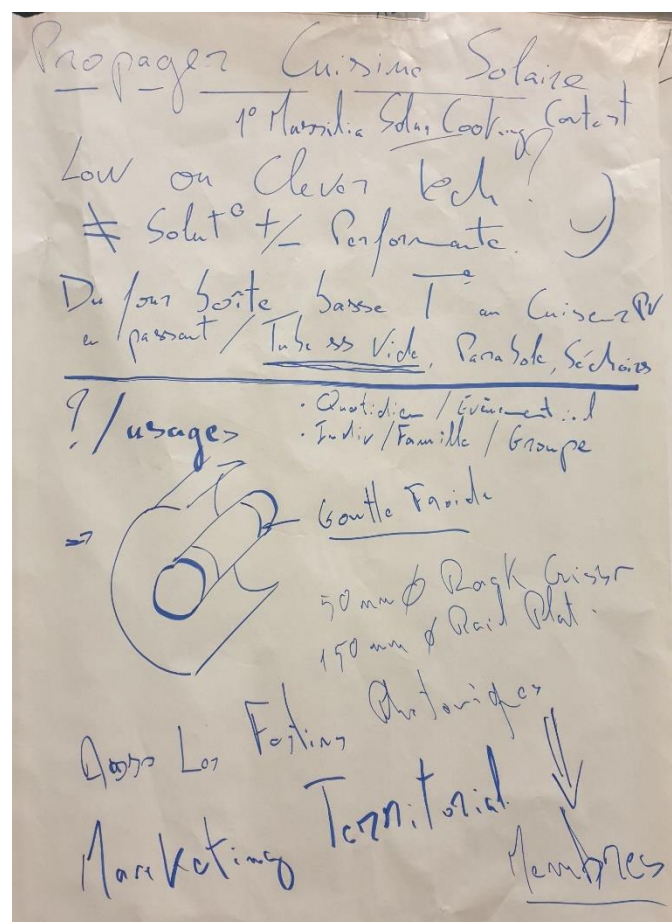 Propager Cuisine Solaire
1º Massilia Solar Cooking Contest
Low ou Clever tech ?
≠ Solut° +/- Performante
Du four boîte basse T° au Cuiseur PV
en passant / Tube ss Vide, Parabole, Séchoirs
? / usages
· Quotidien / Évènementiel
· Indiv / Famille / Groupe
⇒
Goutte Froide
50 mm ø
150 mm ø Plat
Asso Les Festins Photoniques
Marketing Territorial
Membres